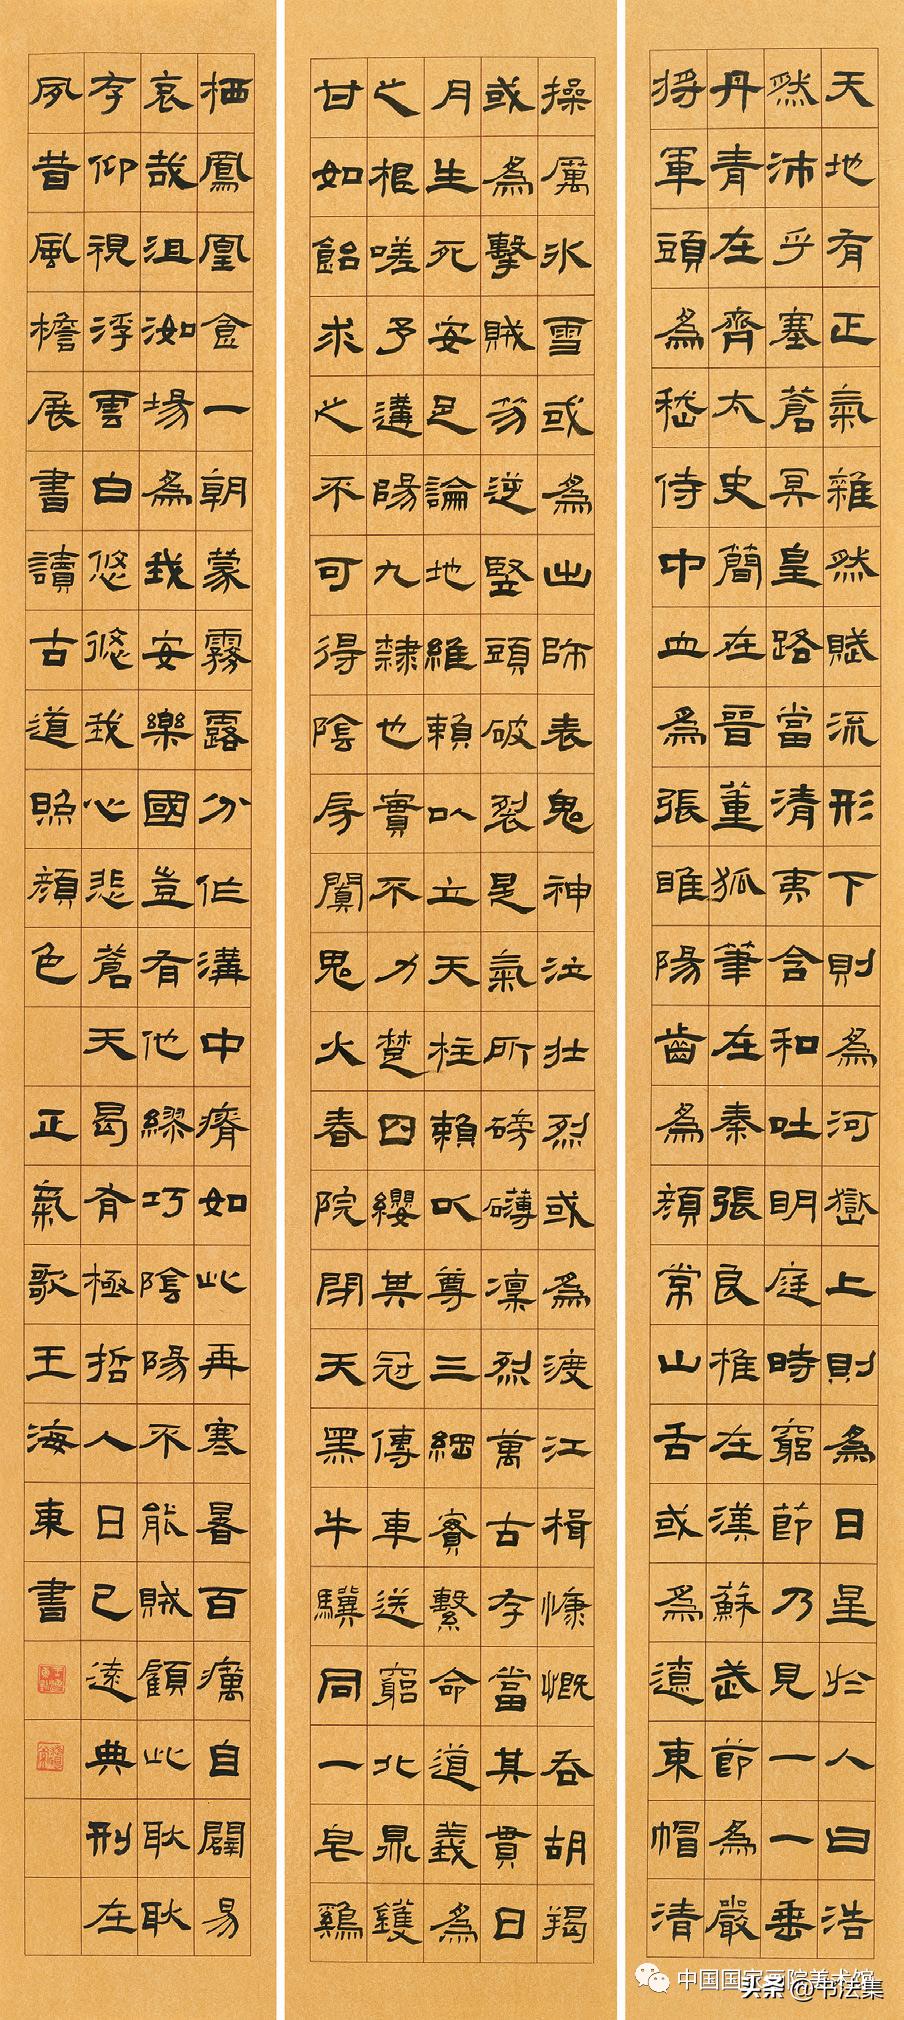 天地有正氣雜然賦流形下則為河嶽上則為日星於人曰浩
然沛乎塞蒼冥皇路當清夷含和吐明庭時窮節乃見一一垂
丹青在齊太史簡在晉董狐筆在秦張良椎在漢蘇武節為嚴
將軍頭為嵇侍中血為張睢陽齒為顏常山舌或為遼東帽清
操厲冰雪或為出師表鬼神泣壯烈或為渡江楫慷慨吞胡羯
或為擊賊笏逆豎頭破裂是氣所磅礴凜烈萬古存當其貫日
月生死安足論地維賴以立天柱賴以尊三綱實繫命道義為
之根嗟予遘陽九隸也實不力楚囚纓其冠傳車送窮北鼎鑊
甘如飴求之不可得陰房闃鬼火春院閉天黑牛驥同一皂雞
栖鳳凰食一朝蒙霧露分作溝中瘠如此再寒暑百癘自闢易
哀哉沮洳場為我安樂國豈有他繆巧陰陽不能賊顧此耿耿
存仰視浮雲白悠悠我心悲蒼天曷有極哲人日已遠典刑在
夙昔風檐展書讀古道照顏色 正氣歌王海東書
中国国家画院美术馆
头条 @书法集